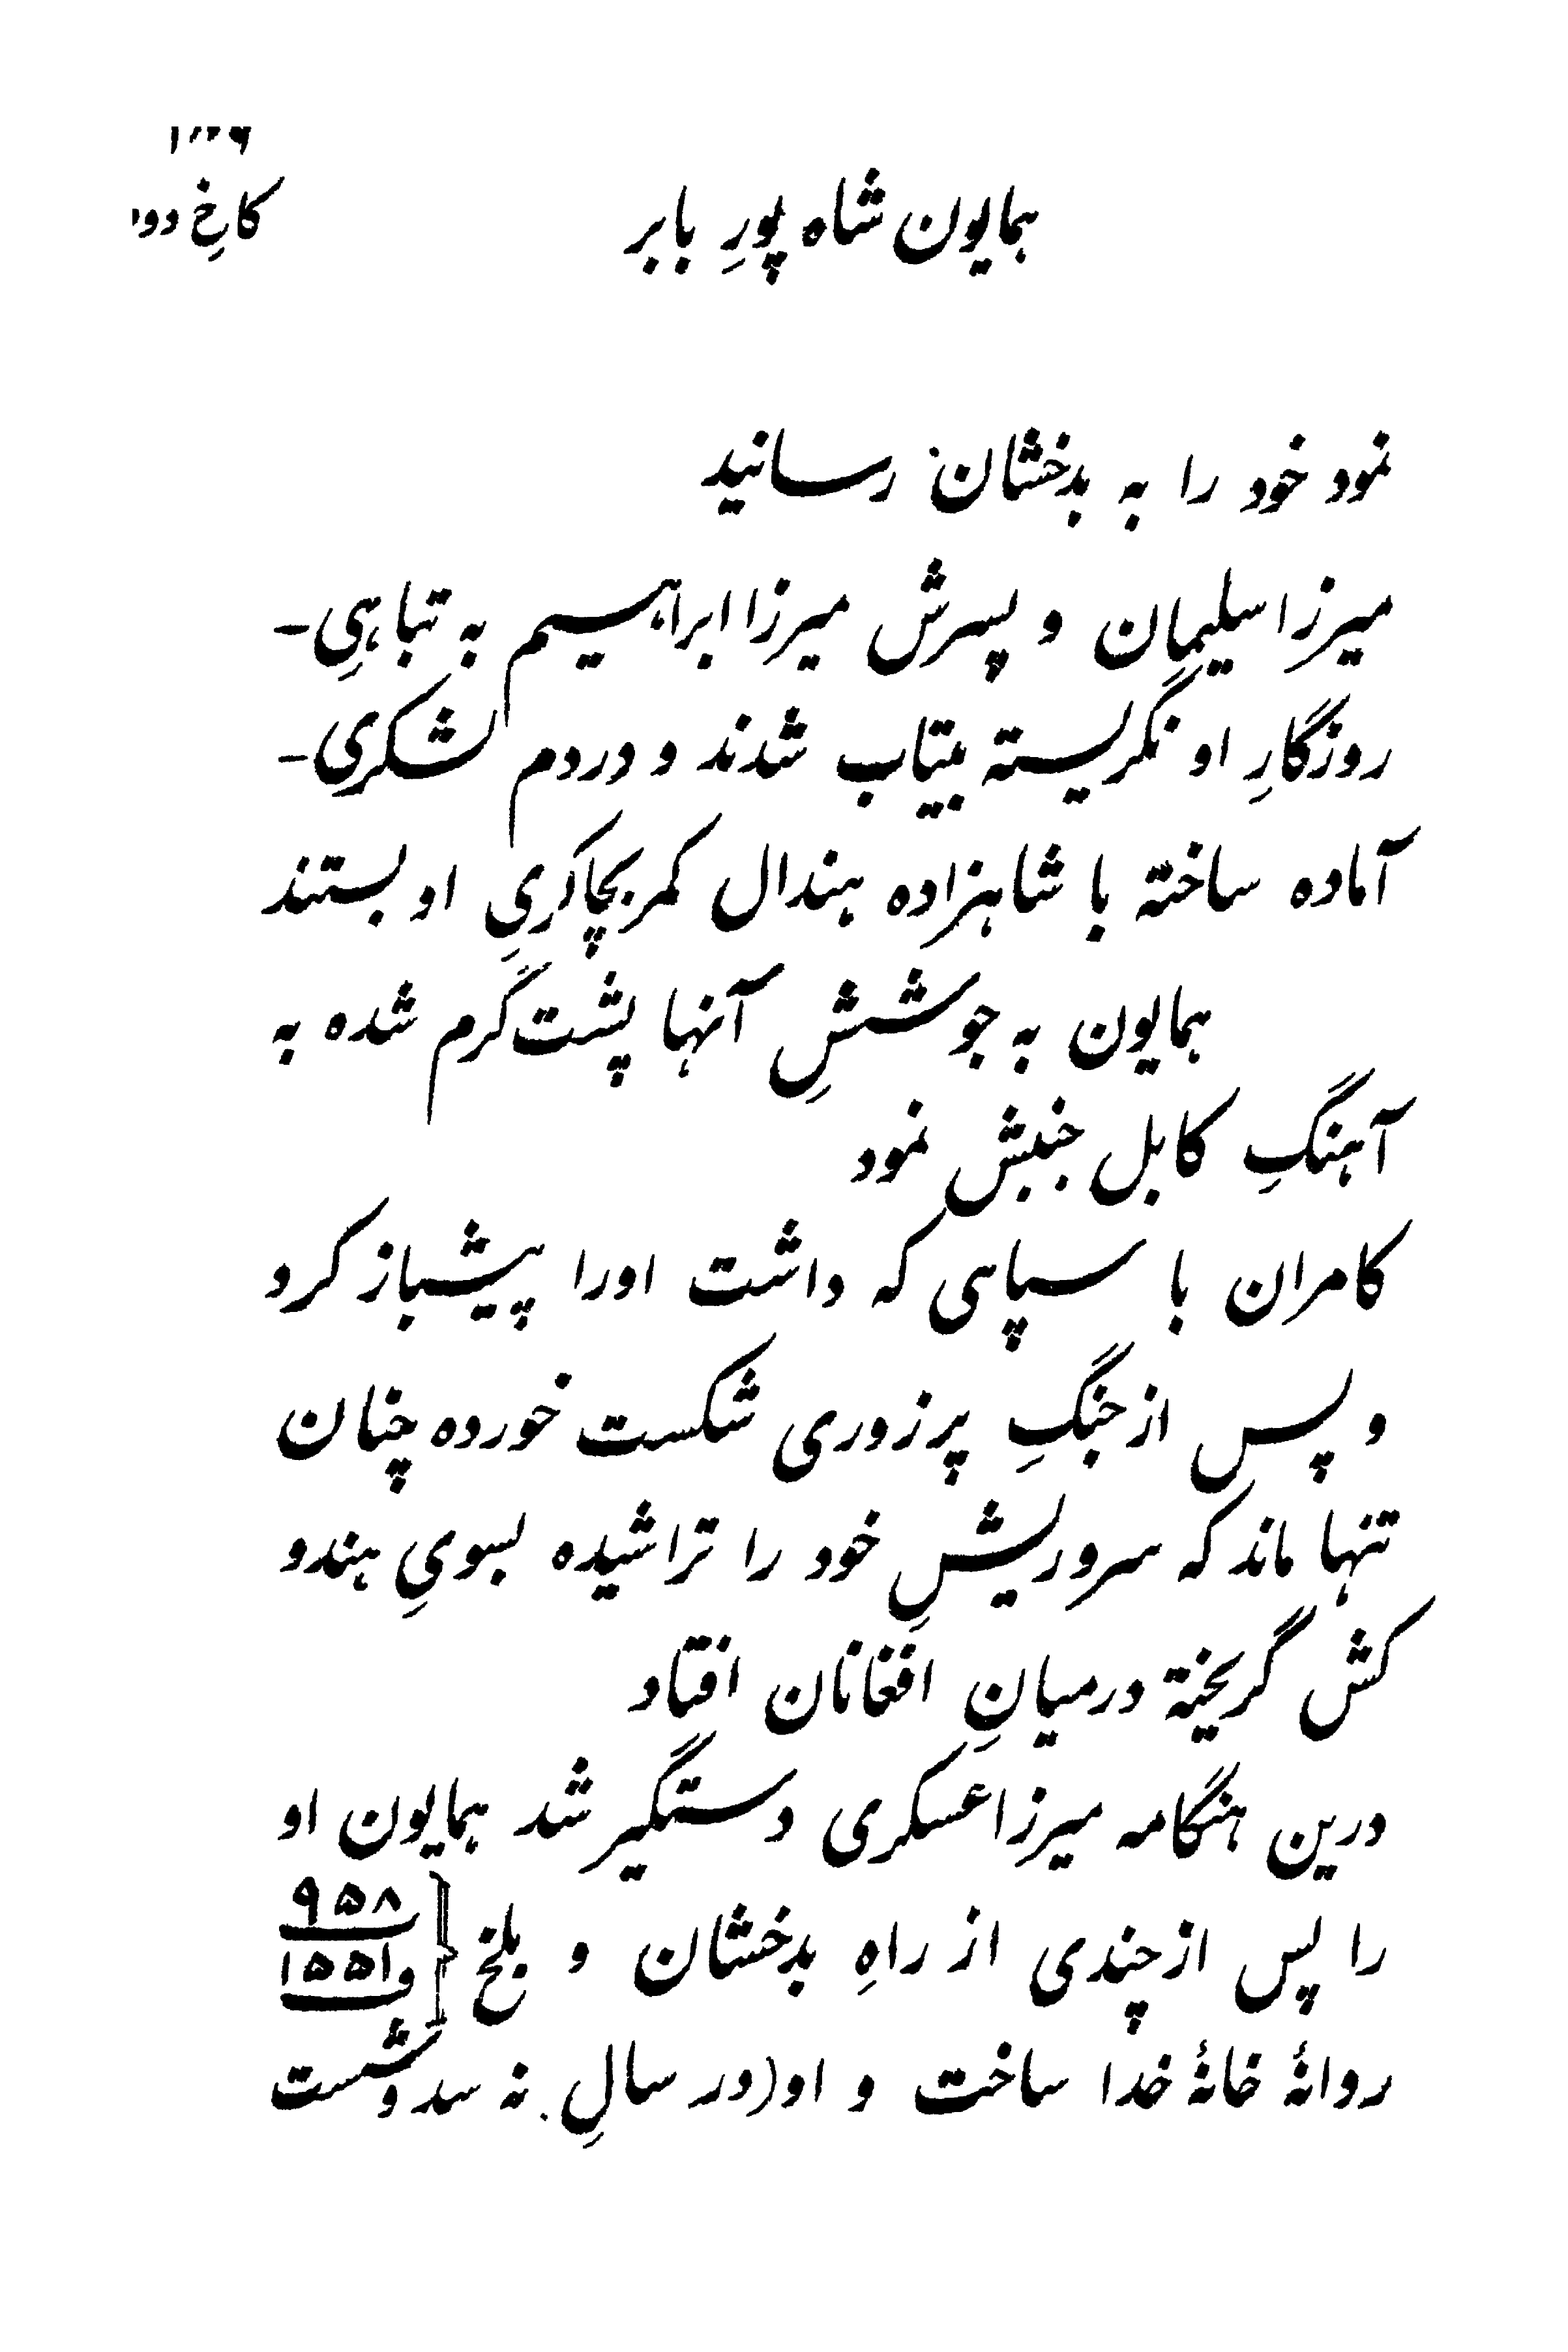 کاخِ دو
همایون شاه پورِ بابر
نمود خود را به بدخشان رسانید
میرزا سلیمان و پسرش میرزا ابراهیم به تباهیِ -
روزگارِ او نگریسته بیتاب شدند و دردم لشکری -
آماده ساخته با شاهزاده هندال کمر بچاکریِ او بستند
همایون به جوششِ آنها پشت گرم شده به
آهنگِ کابل جنبش نمود
کامران با سپاهی که داشت اورا پیشباز کرد
و پسِ از جنگِ پر زوری شکست خورده چنان
تنها ماند که سر و ریشِ خود را تراشیده بسویِ هندو
کش گریخته درمیانِ افغانان افتاد
درین هنگامه میرزا عسکری دستگیر شد همایون او
را پس از چندی از راهِ بدخشان و بلخ { ۹۵۸
و ۱۵۵۱
روانهٔ خانهٔ خدا ساخت و او (در سالِ نه سد و شست